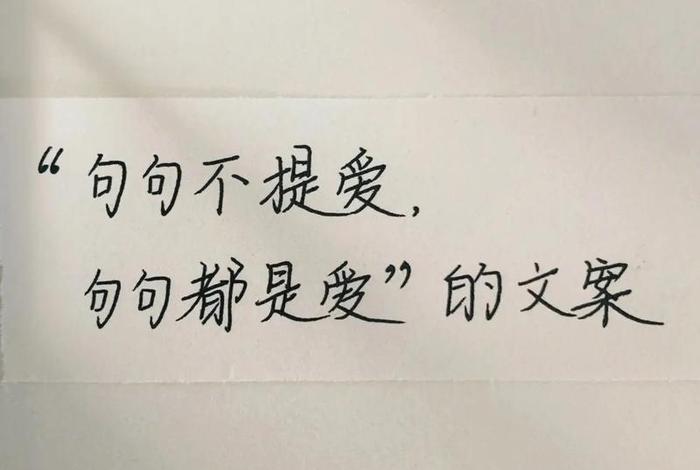 “句句不提爱，
句句都是爱”的文案